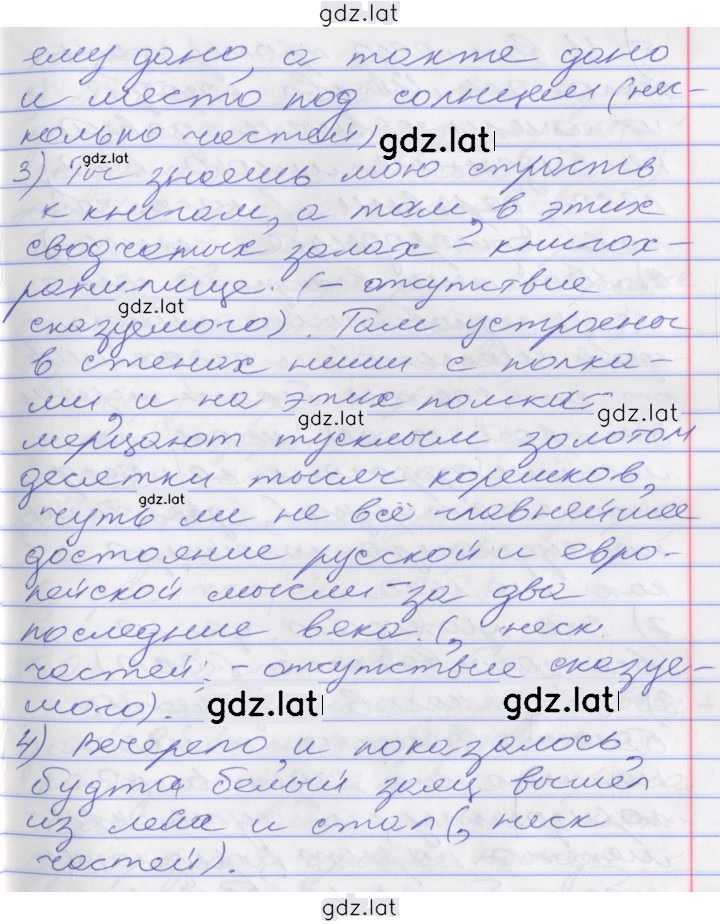 gdz.lat
ему дано, а также дано
и место под солнцем (нес-
колько частей)
gdz.lat
gdz.lat
3) Ты знаешь мою страсть
к книгам, а там, в этих
сводчатых залах – книгох-
ранилище. (– отсутствие
gdz.lat
сказуемого). Там устроены
в стенах ниши с полка-
ми, и на этих полках
gdz.lat
gdz.lat
мерцают тусклым золотом
десятки тысяч корешков,
gdz.lat
чуть ли не всё главнейшее
достояние русской и евро-
пейской мысли – за два
последние века. (, неск.
частей; – отсутствие сказуе-
мого).
gdz.lat
gdz.lat
4) Вечерело, и показалось,
будто белый заяц вышел
из леса и стал (, неск
частей).
gdz.lat